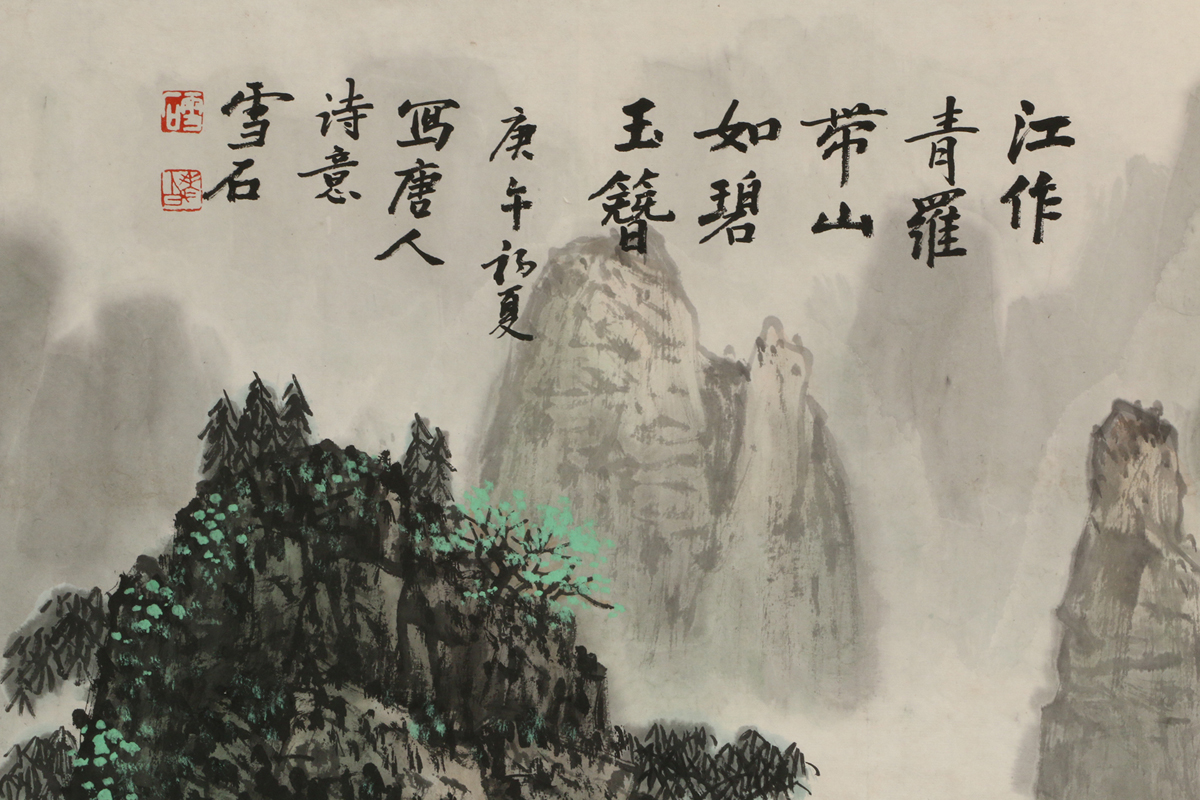 江作
青羅
带山
如碧
玉簪
庚午初夏
写唐人
诗意
雪石